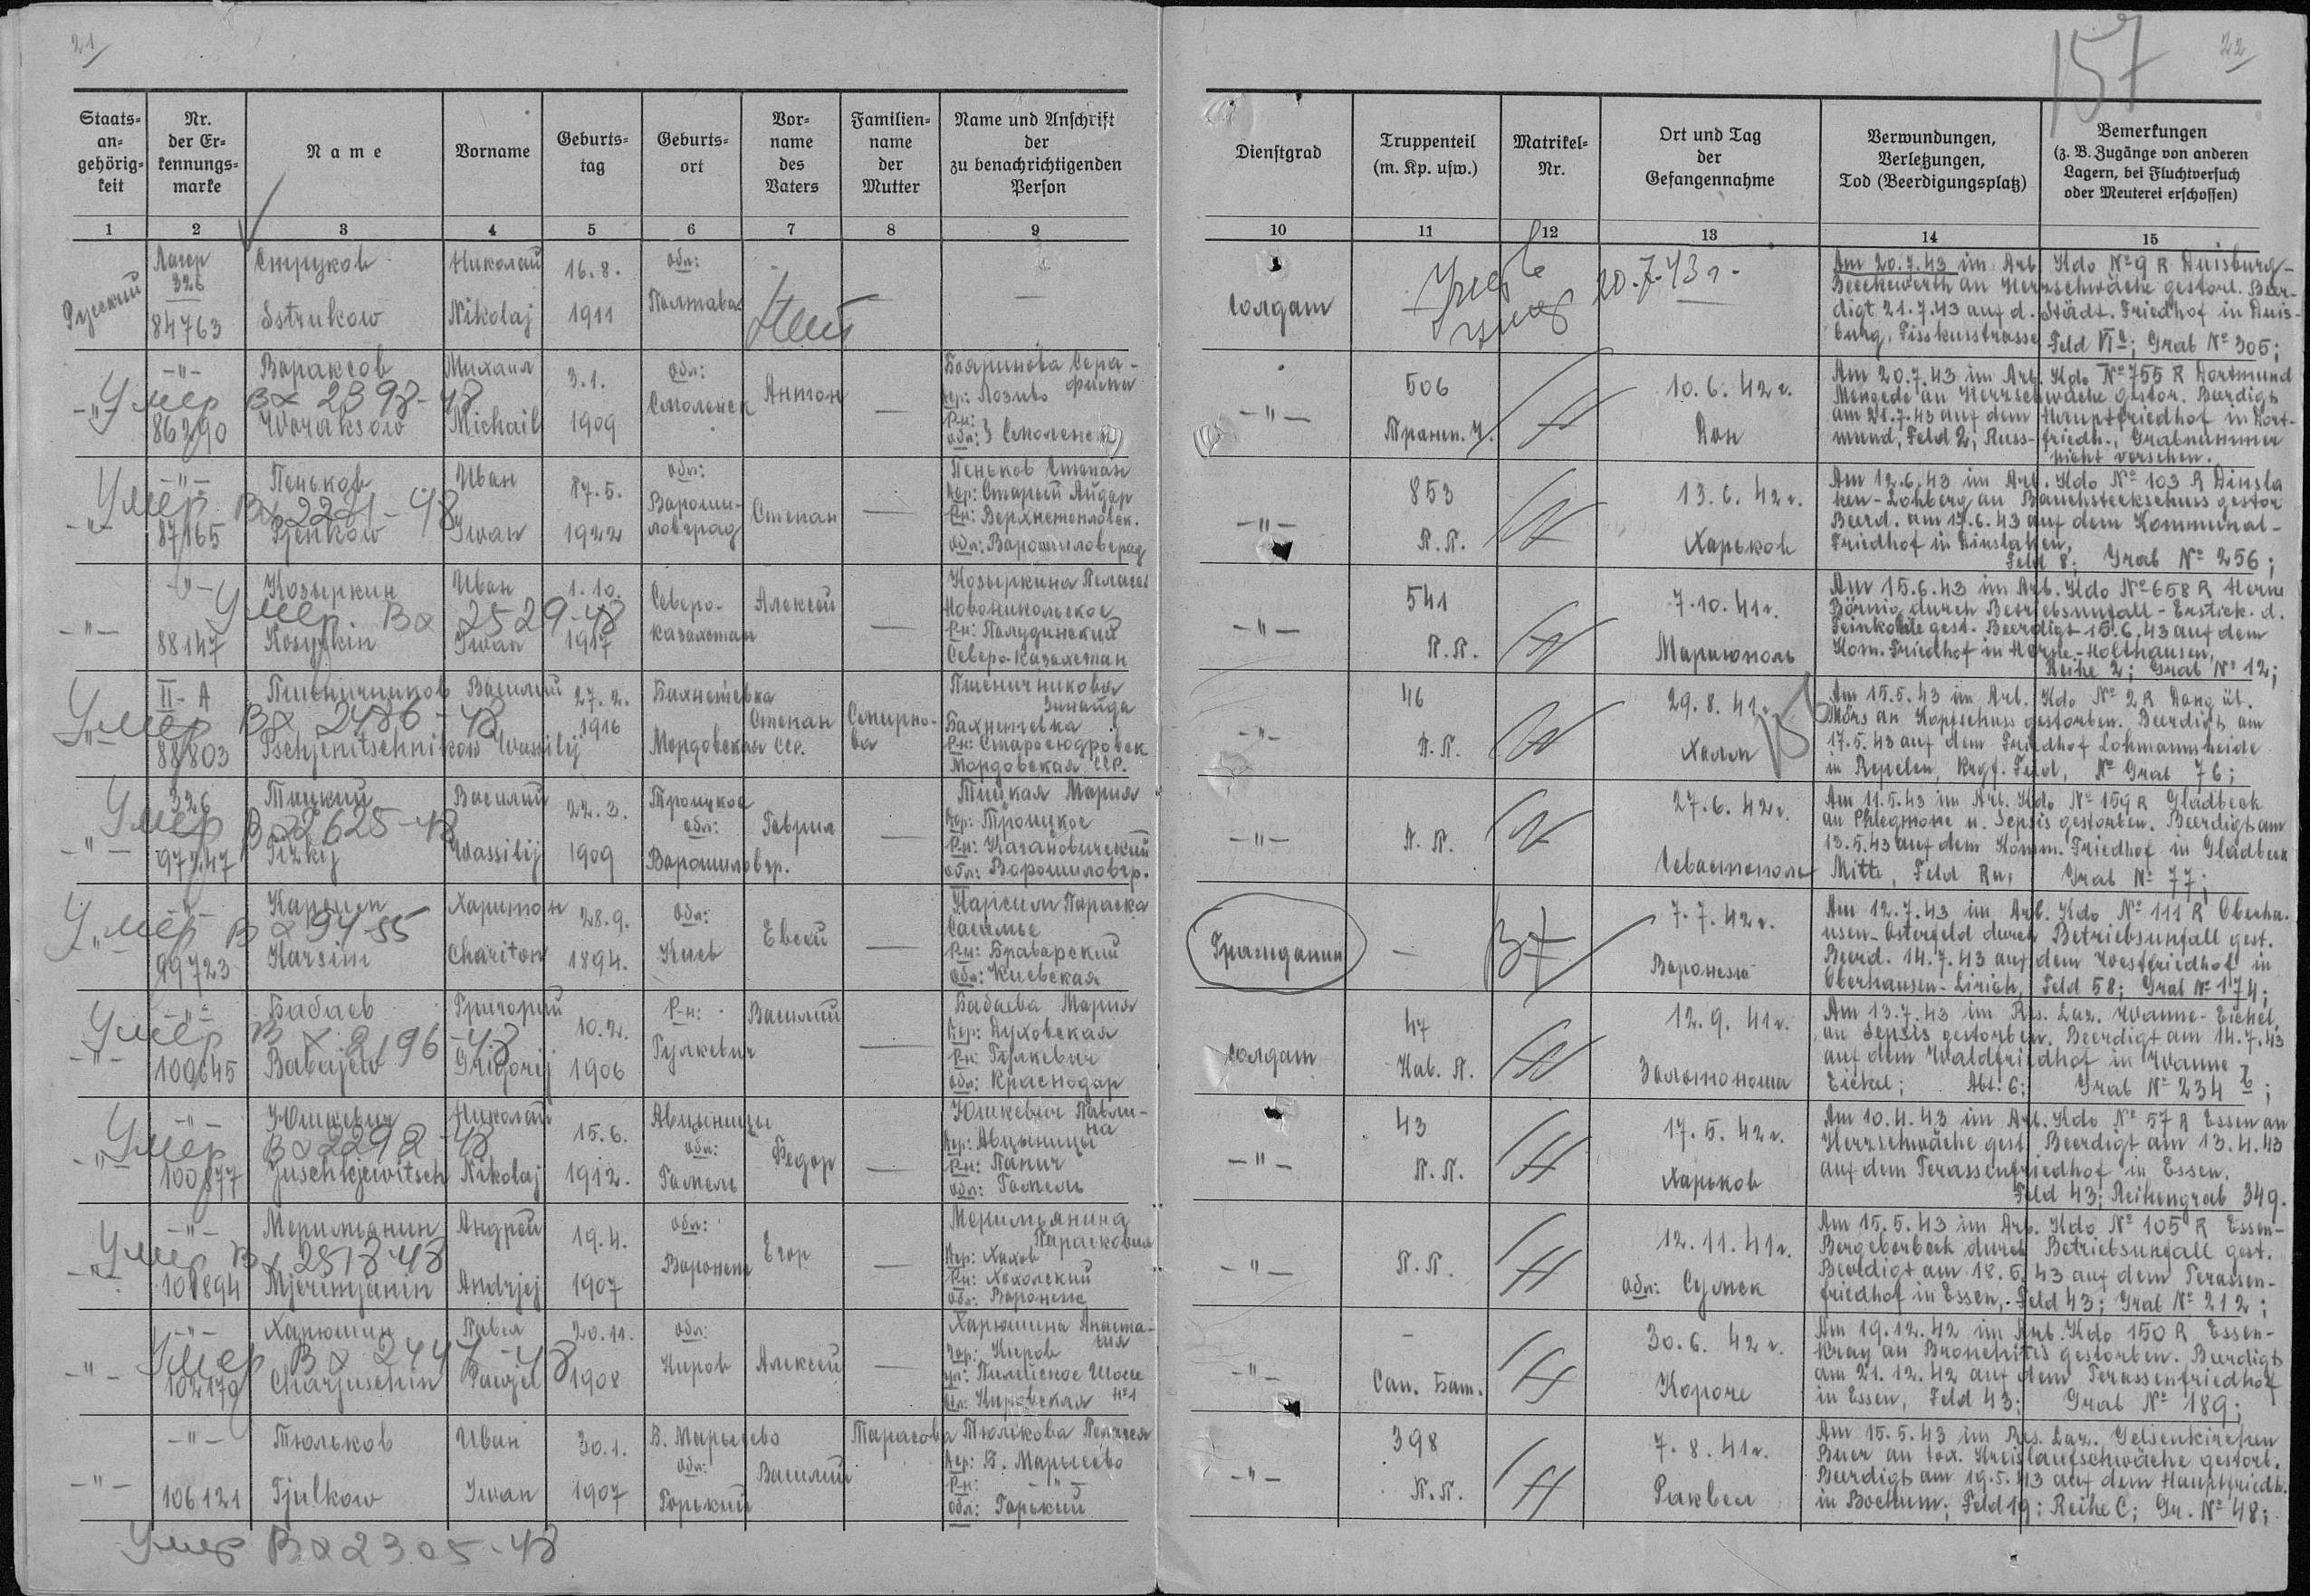 21
157
22
Staats=
an=
gehörig=
keit
Nr.
der Er=
kennungs=
marke
Name
Vorname
Geburts=
tag
Geburts=
ort
Vor=
name
des
Vaters
Familien=
name
der
Mutter
Name und Anschrift
der
zu benachrichtigenden
Person
Dienstgrad
Truppenteil
(m. Kp. usw.)
Matrikel=
Nr.
Ort und Tag
der
Gefangennahme
Verwundungen,
Verletzungen,
Tod (Beerdigungsplatz)
Bemerkungen
(z. B. Zugänge von anderen
Lagern, bei Fluchtversuch
oder Meuterei erschossen)
1 2 3 4 5 6 7 8 9 10 11 12 13 14 15
Русский
Лагер
326
84763
Струков
Sstrukow
Николай
Nikolaj
16.8.
1911
обл:
Полтава
—
—
солдат
20.7.43 г.
Am 20.7.43 im Arb. Kdo Nº 9 R Duisburg-
Beeckerwerth an Herzschwäche gestorb. Beer-
digt 21.7.43 auf d. Städt. Friedhof in Duis-
burg, Fisskusstrasse Feld VI; Grab Nº 305;
-"-
-"-
86290
Вораксов
Woraksow
Михаил
Michail
3.1.
1909
обл:
Смоленск
Антон
—
Бояринова Сера-
фима
дер: Лозиво
р-н:
обл: З Смоленск
Умер Вх 2398-48
-"-
506
Трансп. Ч.
10.6.42 г.
Дон
Am 20.7.43 im Arb. Kdo Nº 755 R Dortmund
Mengede an Herzschwäche gestor. Beerdigt
am 21.7.43 auf dem Hauptfriedhof in Dort-
mund, Feld 2, Russ-friedh., Grabnummer
nicht versehen.
-"-
-"-
87165
Пеньков
Pjenkow
Иван
Iwan
17.5.
1922
обл:
Вороши-
ловград
Степан
—
Пеньков Степан
дер: Старый Айдар
р-н: Верхнетепловск.
обл: Ворошиловград
Умер Вх 2221-48
-"-
853
П.П.
13.6.42 г.
Харьков
Am 12.6.43 im Arb. Kdo Nº 103 R Dinsla
ken-Lohberg an Bauchsteckschuss gestor
Beerd. am 17.6.43 auf dem Kommunal-
Friedhof in Dinslaken,
Feld 8; Grab Nº 256;
-"-
-"-
88147
Козыркин
Kosyrkin
Иван
Iwan
1.10.
1917
Северо-
казахстан
Алексей
—
Козыркина Пелагея
Новоникольское
р-н: Полудинский
Северо-Казахстан
Умер. Вх 2529-48
-"-
541
П.П.
7.10.41 г.
Мариюполь
Am 15.6.43 im Arb. Kdo Nº 658 R Herne
Börnig durch Betriebsunfall-Erstick. d.
Feinkohle gest. Beerdigt 15.6.43 auf dem
Kom. Friedhof in Herne-Holthausen,
Reihe 2; Grab Nº 12;
-"-
II-A
88803
Пшеничников
Pschjenitschnikow
Василий
Wassilij
27.2.
1916
Бахметевка
Мордовская ССР.
Степан
Смирно-
ва
Пшеничникова
Зинаида
Бахметевка
р-н:
Мордовская ССР.
Умер Вх 2486-48
-"-
46
П.П.
29.8.41 г.
Холм
Am 15.5.43 im Arb. Kdo Nº 2 R
Mörs an Kopfschuss gestorben. Beerdigt am
17.5.43 auf dem Friedhof Lohmannsheide
in Repelen, Krgf. Feld, Nº Grab 76;
-"-
326
97747
Тицкий
Tizkij
Василий
Wassilij
22.3.
1909
Троицкое
обл:
Ворошиловгр.
Гаврил
—
Тицкая Мария
дер: Троицкое
р-н: Кагановический
обл: Ворошиловгр.
Умер Вх 2625-48
-"-
П.П.
27.6.42 г.
Севастополь
Am 11.5.43 im Arb. Kdo Nº 159 R Gladbeck
an Phlegmone u. Sepsis gestorben. Beerdigt am
13.5.43 auf dem Komm. Friedhof in Gladbeck
Mitte, Feld Ru; Grab Nº 77;
-"-
-"-
99723
Карсим
Karsim
Харитон
Chariton
28.9.
1894.
обл:
Киев
Евсей
—
Карсим Параска
р-н: Браварский
обл: Киевская
Умер Вх 9455
Гражданин
—
7.7.42 г.
Воронеж
Am 12.7.43 im Arb. Kdo Nº 111 R Oberha-
usen-Osterfeld durch Betriebsunfall gest.
Beerd. 14.7.43 auf dem Westfriedhof in
Oberhausen-Lirich, Feld 58; Grab Nº 174;
-"-
-"-
100645
Бабаев
Babajew
Григорий
Grigorij
10.2.
1906
р-н:
Гулкевич
Василий
—
Бабаева Мария
дер: Духовская
р-н: Гулкевич
обл: Краснодар
Умер Вх 2196-48
солдат
47
Кав. П.
12.9.41 г.
Золотоноша
Am 13.7.43 im Res. Laz. Wanne-Eickel
an Sepsis gestorben. Beerdigt am 14.7.43
auf dem Waldfriedhof in Wanne
Eickel; Abt. 6; Grab Nº 234 b;
-"-
-"-
100877
Юшкевич
Juschkjewitsch
Николай
Nikolaj
15.6.
1912.
Авцыницы
обл:
Гомель
Федор
—
Юшкевич Павли-
на
дер: Авцыницы
р-н: Панич
обл: Гомель
Умер Вх 2292-48
-"-
43
П.П.
17.5.42 г.
Харьков
Am 10.4.43 im Arb. Kdo Nº 57 R Essen an
Herzschwäche gest. Beerdigt am 13.4.43
auf dem Terassenfriedhof in Essen.
Feld 43; Reihengrab 349.
-"-
-"-
101894
Меримьянин
Mjerimjanin
Андрей
Andrjej
19.4.
1907
обл:
Воронеж
Егор
—
Меримьянина
Парасковия
дер: Хохол
р-н: Хохолский
обл: Воронеж
Умер Вх 2518-48
-"-
П.П.
12.11.41 г.
обл: Сумск
Am 15.5.43 im Arb. Kdo Nº 105 R Essen-
Bergeborbeck durch Betriebsunfall gest.
Beerdigt am 18.5.43 auf dem Terassen-
friedhof in Essen, Feld 43; Grab Nº 212;
-"-
-"-
102179
Харюшин
Charjuschin
Павел
Pawjel
20.11.
1908
обл:
Киров
Алексей
—
Харюшина Анаста-
сия
гор: Киров
ул: Шосе
Nº1
обл: Кировская
Умер Вх 2447-48
-"-
-
Сан. Бат.
30.6.42 г.
Короче
Am 19.12.42 im Arb. Kdo 150 R Essen-
Kray an Bronchitis gestorben. Beerdigt
am 21.12.42 auf dem Terassenfriedhof
in Essen, Feld 43; Grab Nº 189;
-"-
-"-
106121
Тюльков
Tjulkow
Иван
Iwan
30.1.
1907
Б. Марысево
обл:
Горький
Василий
Тарасова
Тюлькова Пелагея
дер: Б. Марысево
р-н: -"-
обл: Горький
Умер Вх 2305-48
-"-
398
П.П.
7.8.41 г.
Раквел
Am 15.5.43 im Res. Laz. Gelsenkirchen
Buer an tox. Kreislaufschwäche gestorb.
Beerdigt am 19.5.43 auf dem Hauptfriedh.
in Bochum; Feld 19; Reihe C; Gr. Nº 48;